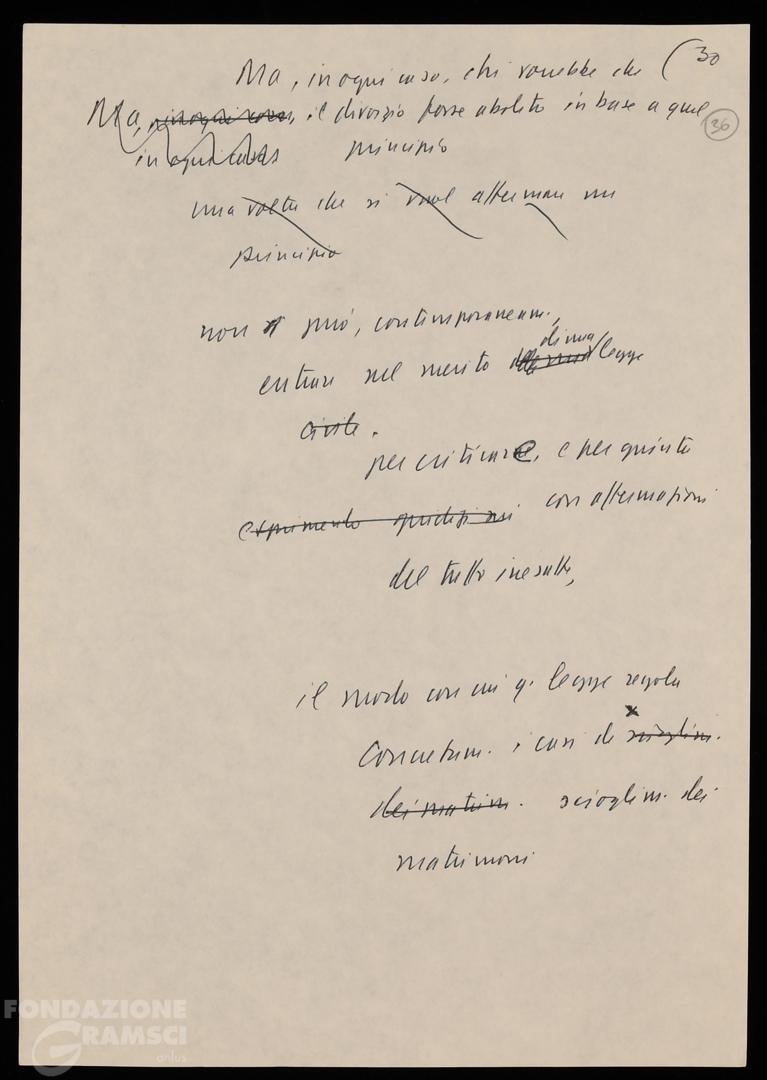 Ma, in ogni caso, chi vorrebbe che (30
Ma, in ogni caso, il divorzio fosse abolito in base a quel
36
in ogni caso principio
una volta che si vuol affermare un
principio
non si può, contemporaneam.,
entrare nel merito di una legge
civile.
per criticare, e per giunta
esprimendo giudizi con affermazioni
del tutto inesatte,
il modo con cui q. legge regola
concretam. i casi di scioglim.
dei matrim. scioglim. dei
matrimoni
FONDAZIONE
GRAMSCI
onlus